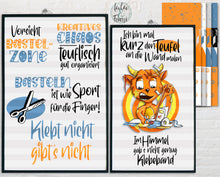 Vorsicht
BASTEL-
ZONE
KREATIVES
CHAOS
teuflisch
gut organisiert
BASTELN
ist wie Sport
für die Finger!
Klebt nicht
gibt's nicht
Ich bin mal
kurz den Teufel
an die Wand malen
Im Himmel
gab's nicht genug
Klebeband